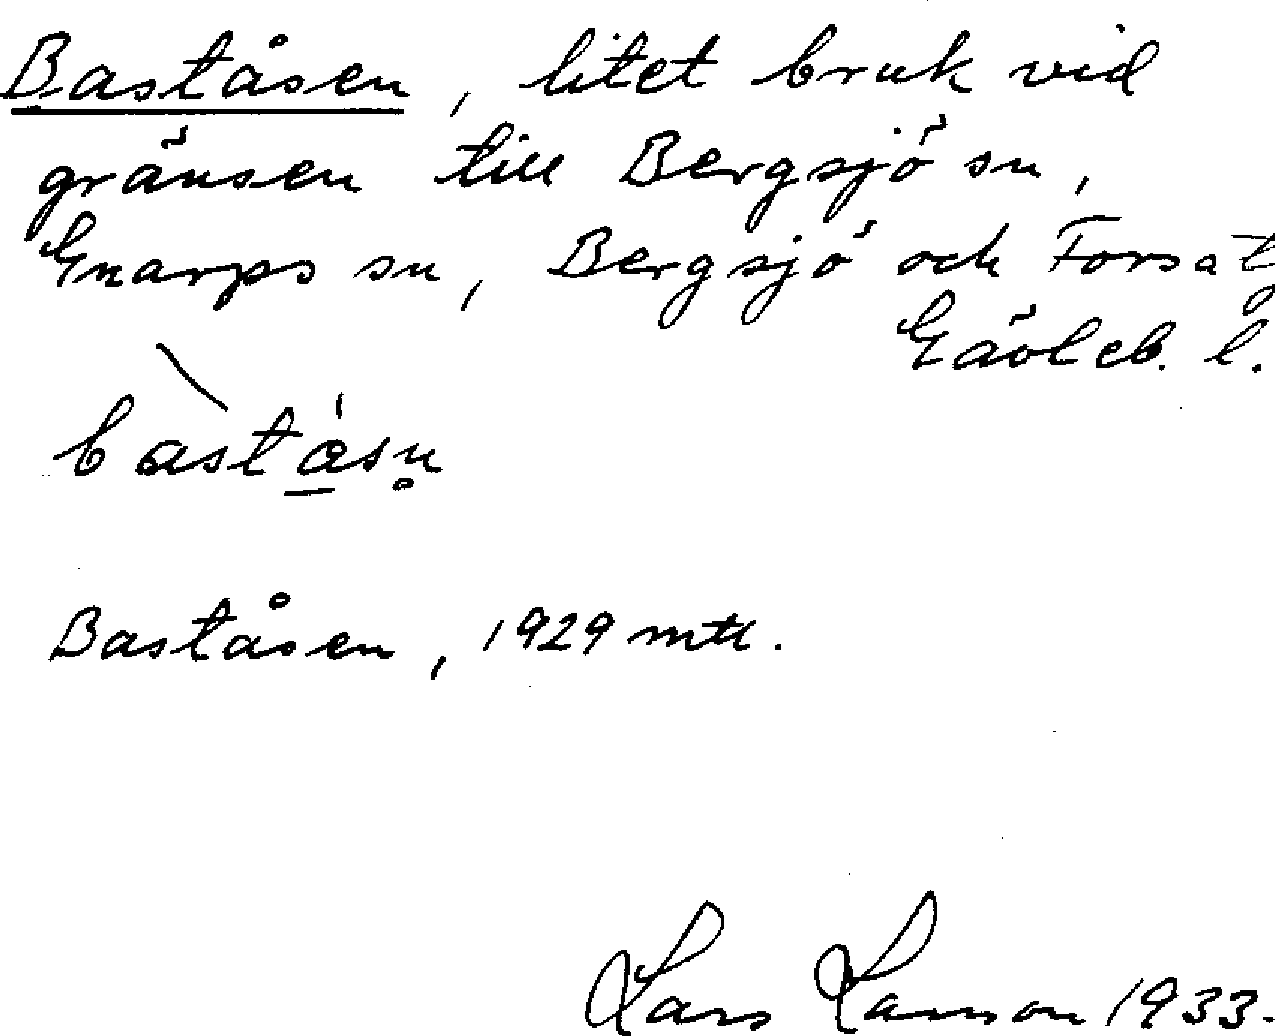 Baståsen, litet bruk vid
gränsen till Bergsjö sn,
Gnarps sn, Bergsjö och Forsa tg
Gävleb. l.
bàstásn̥
Baståsen, 1929 mtl.
Lars Larsson 1933.